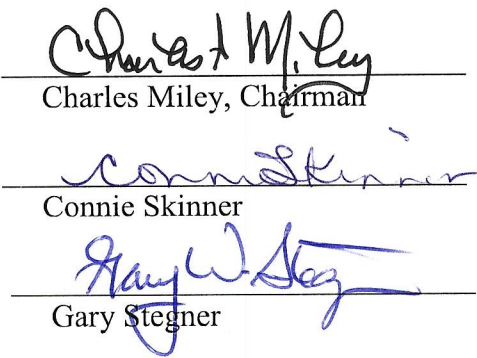 Charles A Miley
Charles Miley, Chairman
Connie Skinner
Connie Skinner
Gary W. Stegner
Gary Stegner